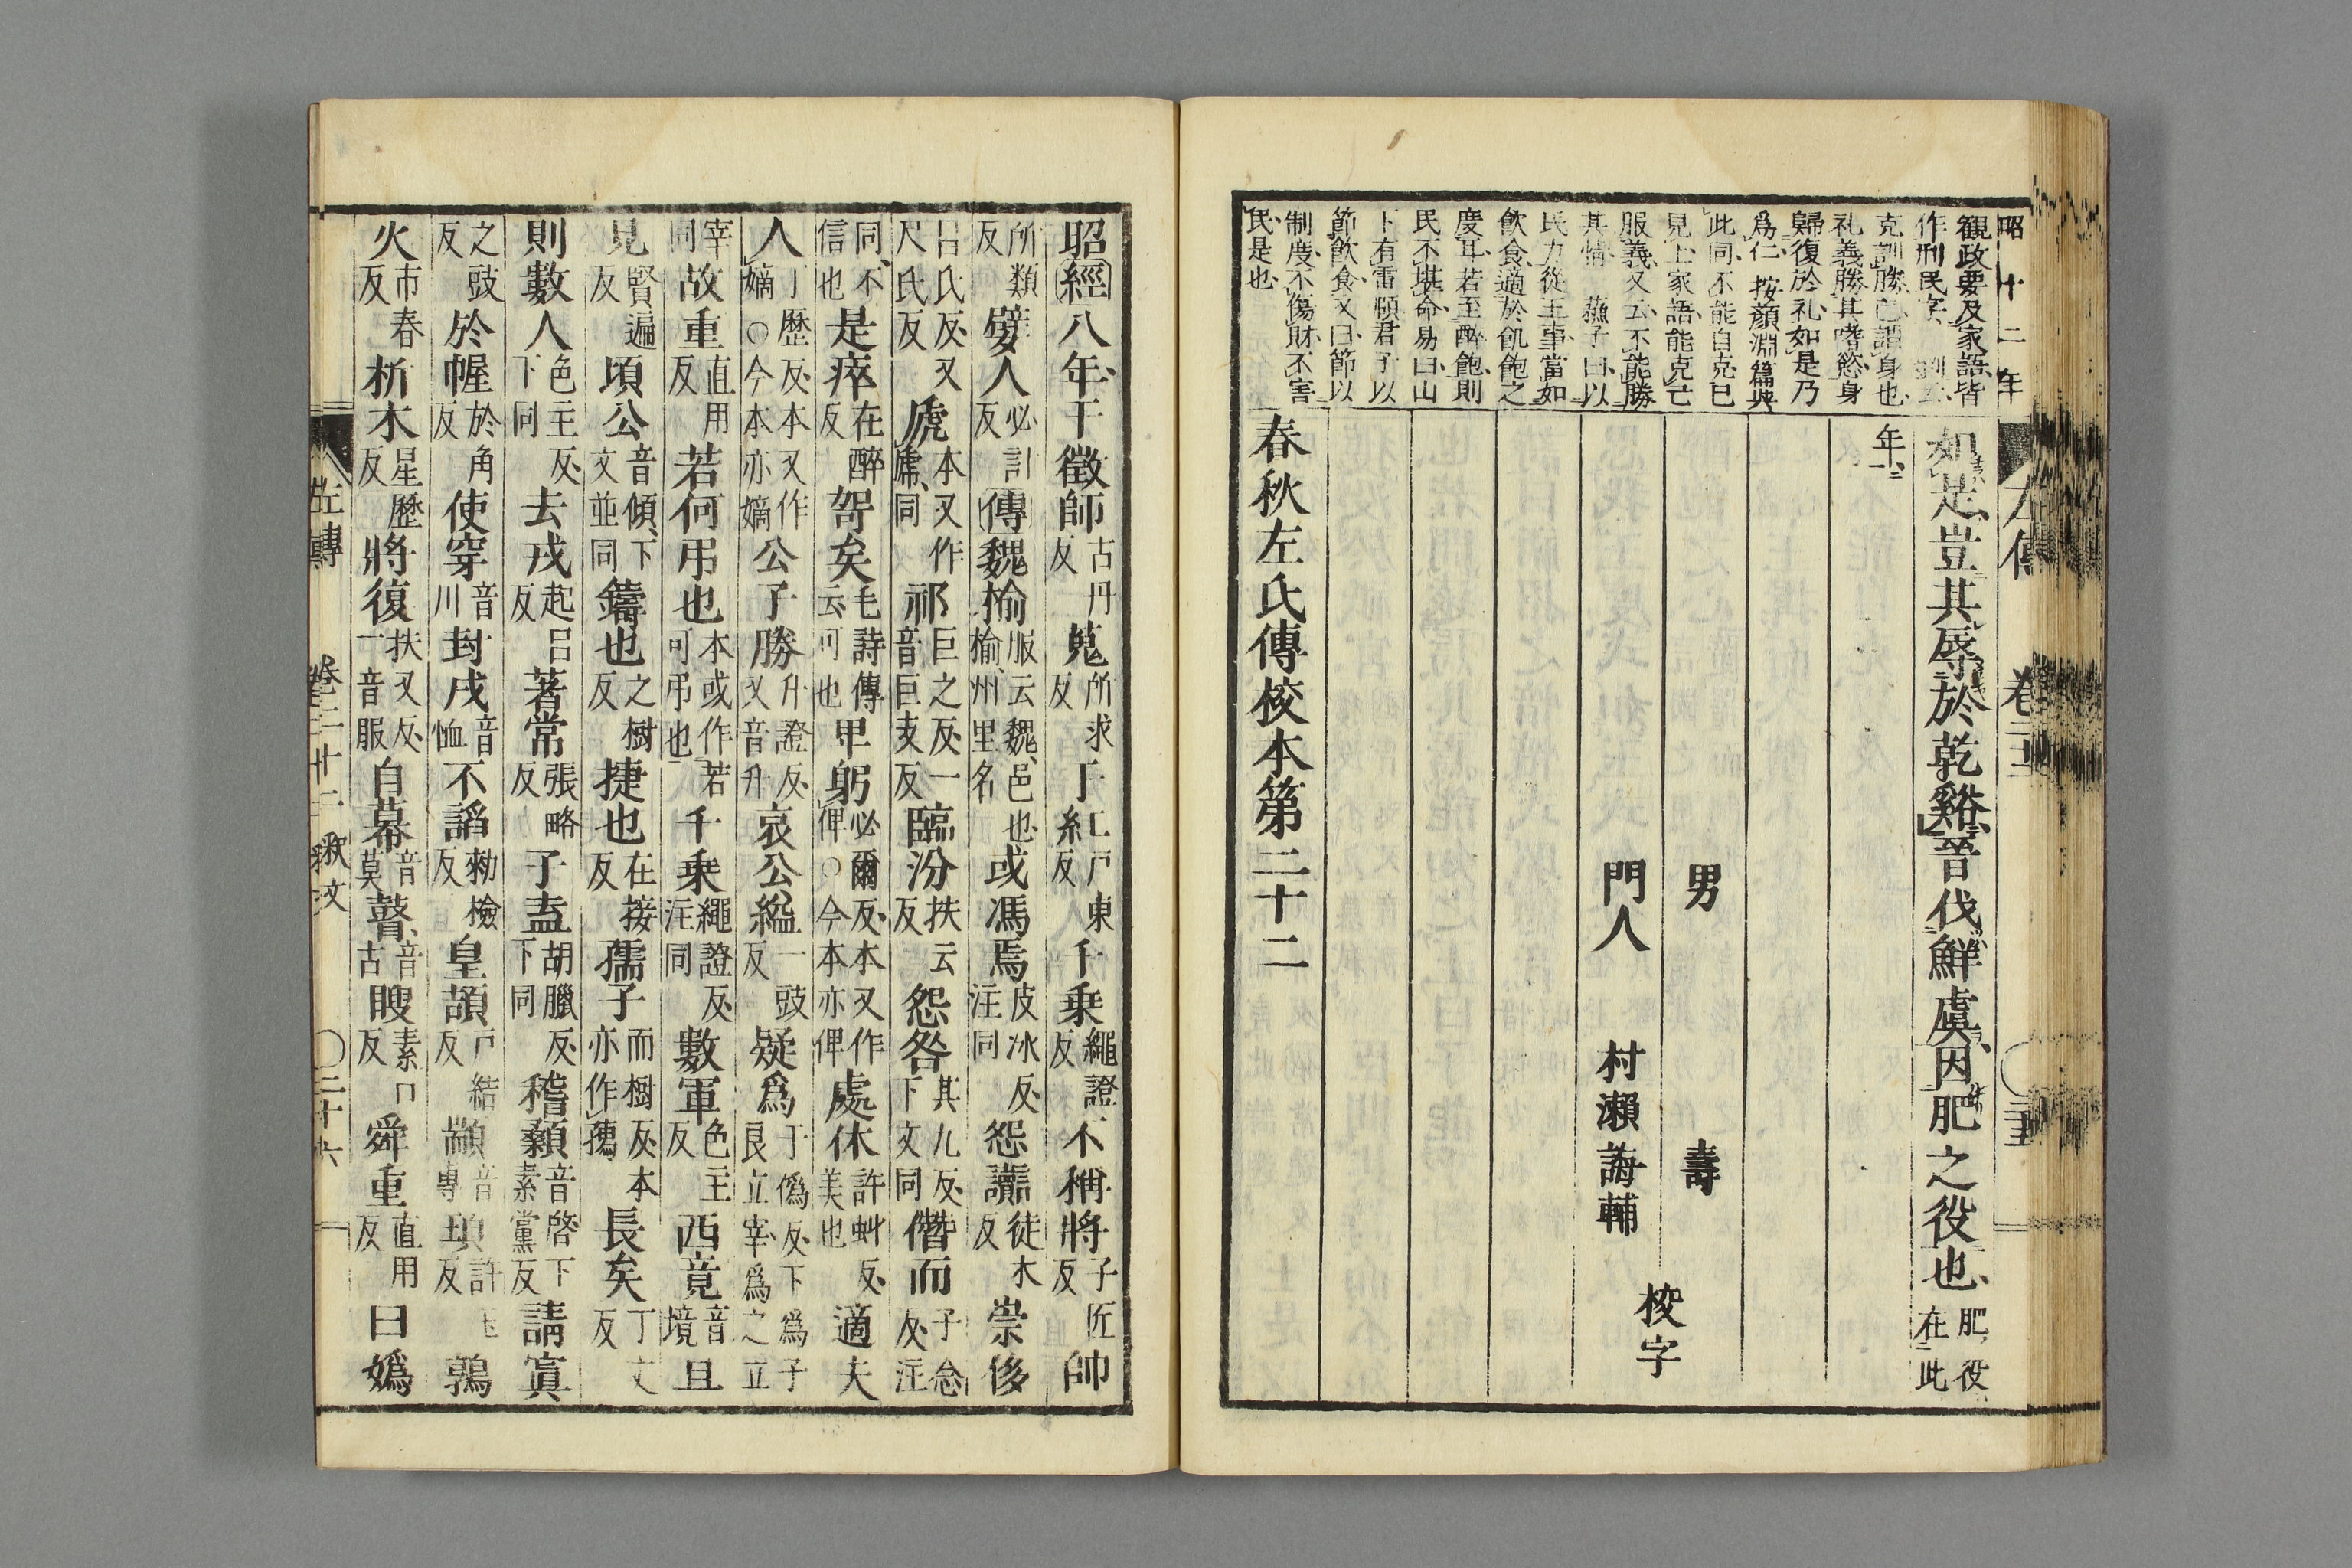 昭十二年
觀政要及家語皆
作刑民字
克訓勝己謂身也
礼義勝其嗜慾身
歸復於礼如是乃
爲仁 按顏淵篇與
此同不能自克已
見上家語能克亡
服義又云不能勝
其情 蘓子曰以
民力從王事當如
飮食適於飢飽之
度耳若至醉飽則
民不堪命易曰山
下有雷頤君子以
節飮食又曰節以
制度不傷財不害
民是也
左傳 卷二十二
如是豈其辱於乾谿晉伐鮮虞因肥之役也肥役在此
年
男 壽
門人 村瀨誨輔
校字
春秋左氏傳校本第二十二
昭經八年干徵師古丹反蒐所求反于紅戸東反千乗繩證反不稱將子匠反帥
所類反嬖人必計反傳魏揄服云魏邑也揄州里名或馮焉皮冰反注同怨讟徒木反崇侈
昌氏反又尺氏反虒本又作虎同祁巨之反一音巨支反臨汾扶云反怨咎其九反下文同僭而子念反注
同不信也是瘁在醉反哿矣毛詩傳云可也甲躬必爾反本又作俾○今本亦俾處休許虯反美也適夫
人丁歷反本又作嫡○今本亦嫡公子勝升證反又音升哀公縊一豉反疑爲于僞反下爲子良立宰爲之立
宰同故重直用反若何弔也本或作若可弔也千乗繩證反注同數軍色主反西竟音境且
見賢遍反頃公音傾下文並同鑄也之樹反捷也在接反孺子而樹反本亦作𡦗長矣丁丈反
則數人色主反下同去戎起呂反著常張略反子盍胡臘反下同稽顙音啓下素黨反請寘
之豉反於幄於角反使穿音川封戌音恤不謟勑檢反皇頡戸結反顓音專頊許玉反鶉
火市春反析木星歷反將復扶又反一音服自幕音莫瞽音古瞍素口反舜重直用反曰嬀
左傳 卷二十二 釋文 ○二十六